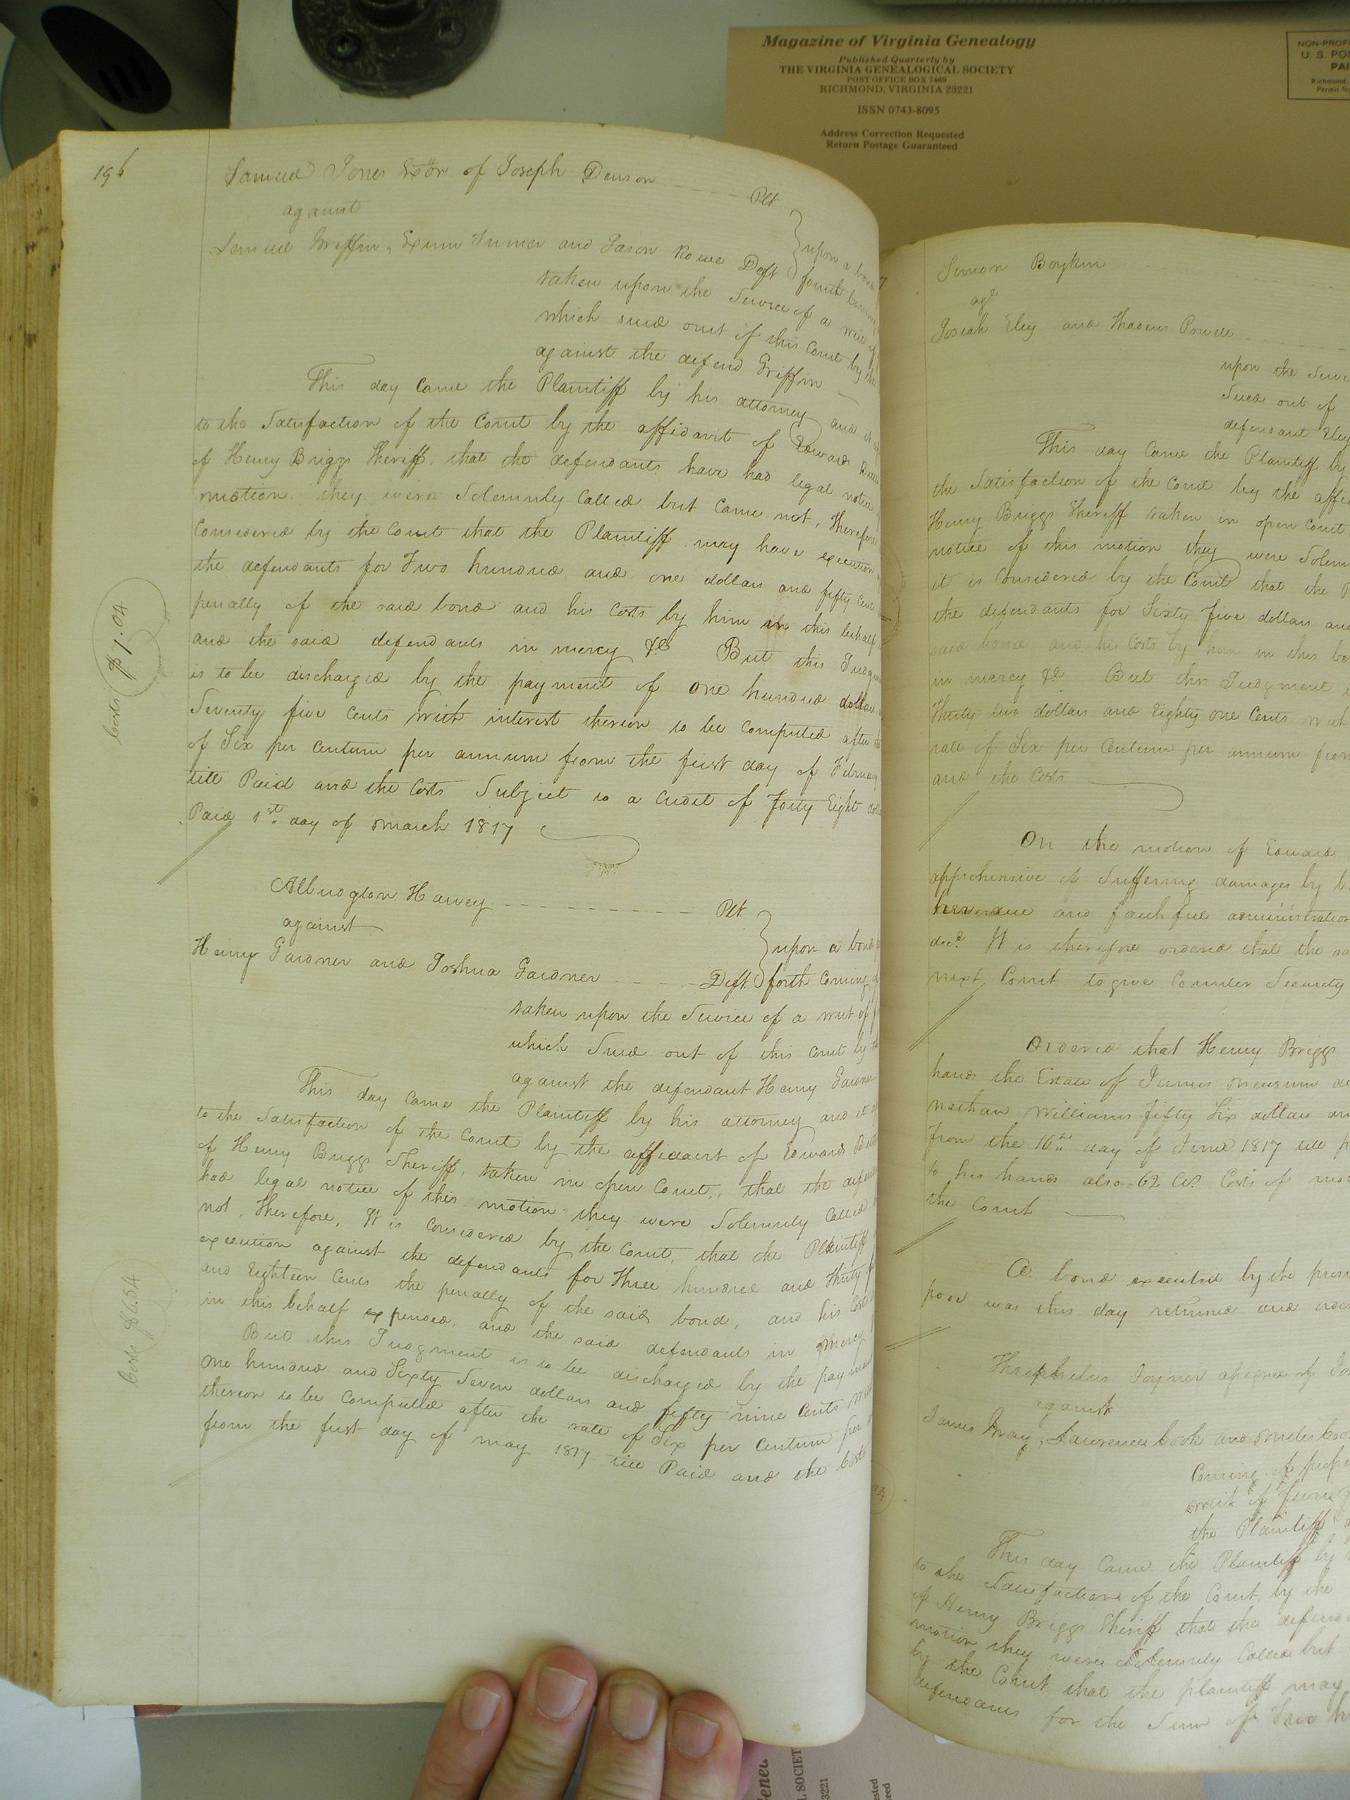 Magazine of Virginia Genealogy
Published Quarterly by
THE VIRGINIA GENEALOGICAL SOCIETY
POST OFFICE BOX 7469
RICHMOND, VIRGINIA 23221
ISSN 0743-8095
Address Correction Requested
Return Postage Guaranteed
NON-PROF
U. S. POS
PAI
Richmond,
Permit N
196
Samuel Jones Exor of Joseph Denson Plt
against
Lemuel Griffin, Exum Turner and Jason Rowe Deft upon a bond
forth
taken upon the Service of a writ of
which sued out of this Court by the
against the defend Griffin
This day came the Plaintiff by his attorney and it
to the Satisfaction of the Court by the affidavit of Edward
of Henry Briggs Sheriff, that the defendants have had legal notice
motion, they were Solemnly Called but came not, Therefore
Considered by the Court that the Plaintiff may have execution
the defendants for Two hundred and one dollars and fifty Cents
penalty of the said bond and his Costs by him in this behalf
and the said defendants in mercy &c But this Judgm
is to be discharged by the payment of one hundred dollars
Seventy five Cents with interest thereon to be Computed after the
of Six per Centum per annum from the first day of February
till Paid and the Costs Subject to a Credit of Forty Eight
Paid 1st day of March 1817
Costs $7.04
Albridgton Harvey Plt
against
Henry Gardner and Joshua Gardner Deft upon a bond
forth Coming
taken upon the Service of a writ of
which Sued out of this Court by the
against the defendant Henry Gardner
This day came the Plaintiff by his attorney and it
to the Satisfaction of the Court by the affidavit of Edward
of Henry Briggs Sheriff, taken in open Court, that the defen
had legal notice of this motion they were Solemnly Called
not, Therefore, It is Considered by the Court, that the Plaintiff
execution against the defendants for Three hundred and Thirty
and Eighteen Cents the penalty of the said bond, and his Costs
in this behalf expended, and the said defendants in Mercy
But this Judgment is to be discharged by the payment
One hundred and Sixty Seven dollars and fifty nine Cents
thereon to be Computed after the rate of Six per Centum per
from the first day of may 1817 till Paid and the Costs
Costs $6.54
Simon Boykin
agt
Josiah Eley and Thadeus Powell
upon the Servi
Sued out of
defendant Eley
This day Came the Plaintiff by
the Satisfaction of the Court by the affi
Henry Briggs Sheriff taken in open Court
notice of this motion they were Solem
it is Considered by the Court that the P
the defendants for Sixty five dollars and
said bond and his Costs by him in this be
in mercy &c But this Judgment
Thirty two dollars and Eighty one Cents
rate of Six per Centum per annum from
and the Costs
On the motion of Edward
apprehensive of Suffering damages by
and faithful administration
decd. It is therefore ordered that the
next Court to give Counter Security
Ordered that Henry Briggs
hands the Estate of James
Nathan Williams fifty Six dollars an
from the 16th day of June 1817 till p
to his hands also 62 Costs of mo
the Court
A bond executed by the
poor was this day returned and
Theophilus Joyner
against
James Gray, Lawrence Cook and
Coming of
writ of
the Plaintiff
This day Came the Plaintiff by
to the Satisfaction of the Court, by the
of Henry Briggs Sheriff that the defend
motion they were Solemnly Called but
by the Court that the plaintiff may
defendants for the Sum of Two h
SOCIET
3221